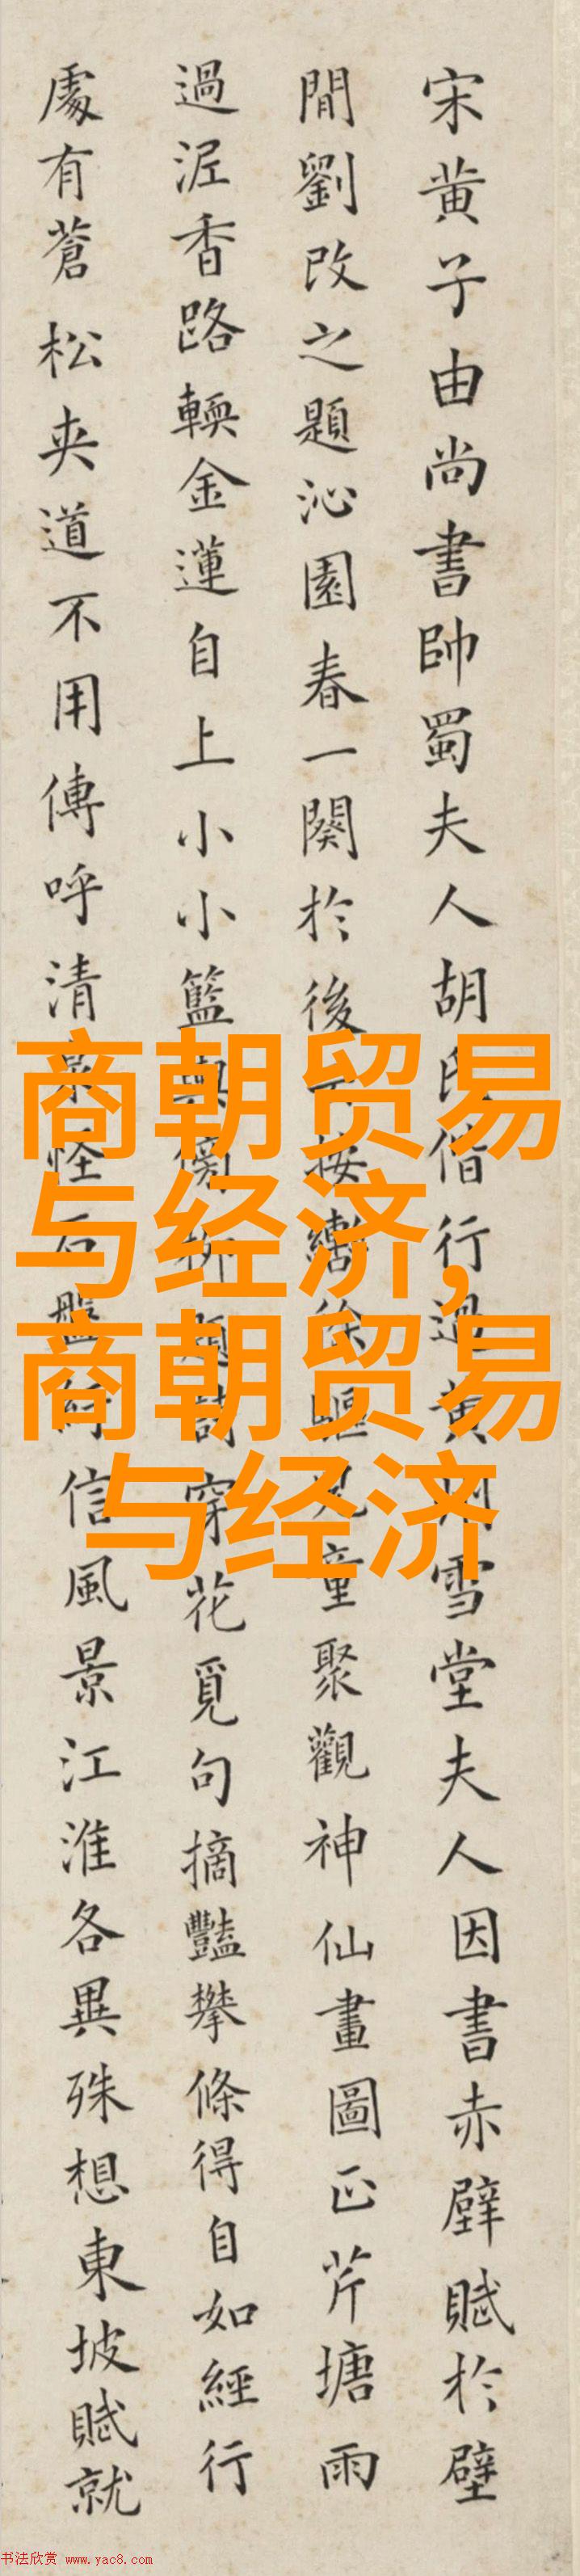 宋黄子由尚書帥蜀夫人胡氏偕行過黄州雪堂夫人因書赤壁賦於壁
間劉改之題沁園春一闋於後按轡徐驅兒童聚觀神仙畫圖正芹塘雨
過泥香路輭金蓮自上小小籃輿傍柳題詩穿花覓句摘豔攀條得自如經行
處有蒼松夾道不用傳呼清泉怪石盤紆信風景江淮各異殊想東坡賦就
商朝贸易
与经济,
商朝贸易
与经济
书法欣赏 www.yac8.com